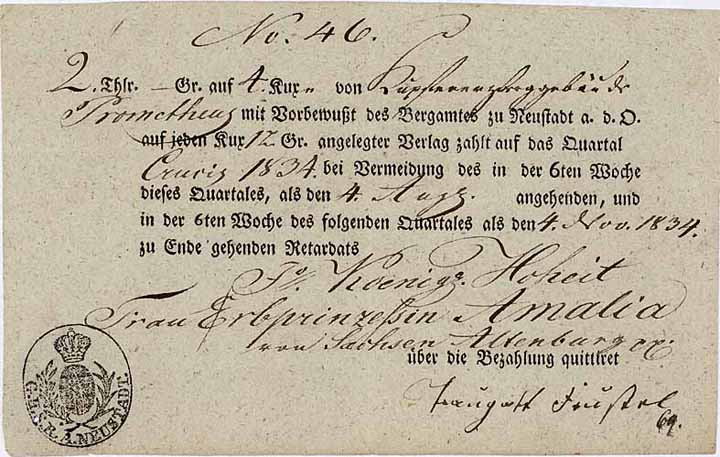 No. 46.
2. Thlr. — Gr. auf 4. Kuxe von Kupfererzberggebäude
Prometheus mit Vorbewußt des Bergamtes zu Neustadt a. d. O.
auf jeden Kux 12 Gr. angelegter Verlag zahlt auf das Quartal
Crucis 1834. bei Vermeidung des in der 6ten Woche
dieses Quartales, als den 4. Aug. angehenden, und
in der 6ten Woche des folgenden Quartales als den 4. Nov. 1834.
zu Ende gehenden Retardats
Koenigl. Hoheit
Frau Erbprinzeßin Amalia
von Sachsen Altenburg pp.
über die Bezahlung quittiret
Traugott Feustel
69.
G.H.S.B.A. NEUSTADT.